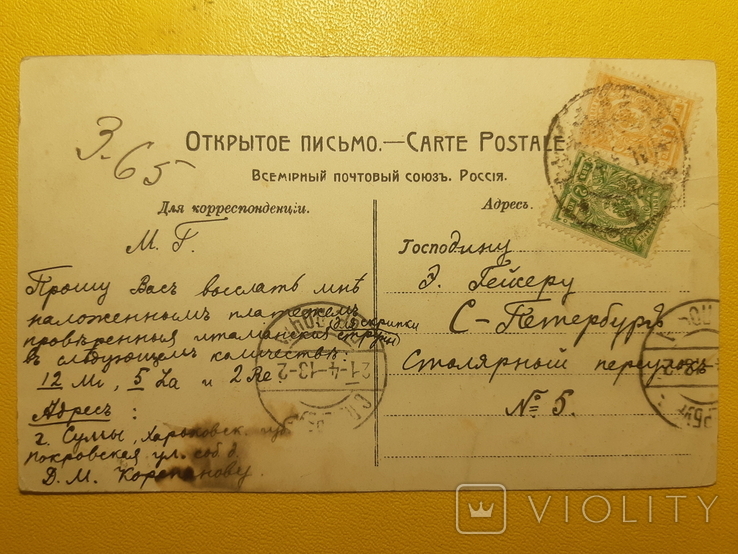 З.65
ОТКРЫТОЕ ПИСЬМО.—CARTE POSTALE
ВСЕМІРНЫЙ ПОЧТОВЫЙ СОЮЗЪ. РОССІЯ.
Для корреспонденціи.
М. Г.
Прошу Васъ выслать мнѣ
наложеннымъ платежемъ
провѣренныя италіанскія струны
(для скрипки)
въ слѣдующемъ количествѣ:
12 Mi, 5 La и 2 Re
Адресъ :
г. Сумы, Харьковск. губ
Покровская ул. соб д.
Д. М.
Адресъ.
Господину
Э. Гейзеру
С-Петербургъ
Столярный переулокъ
№ 5.
21-4-13-2
VIOLITY